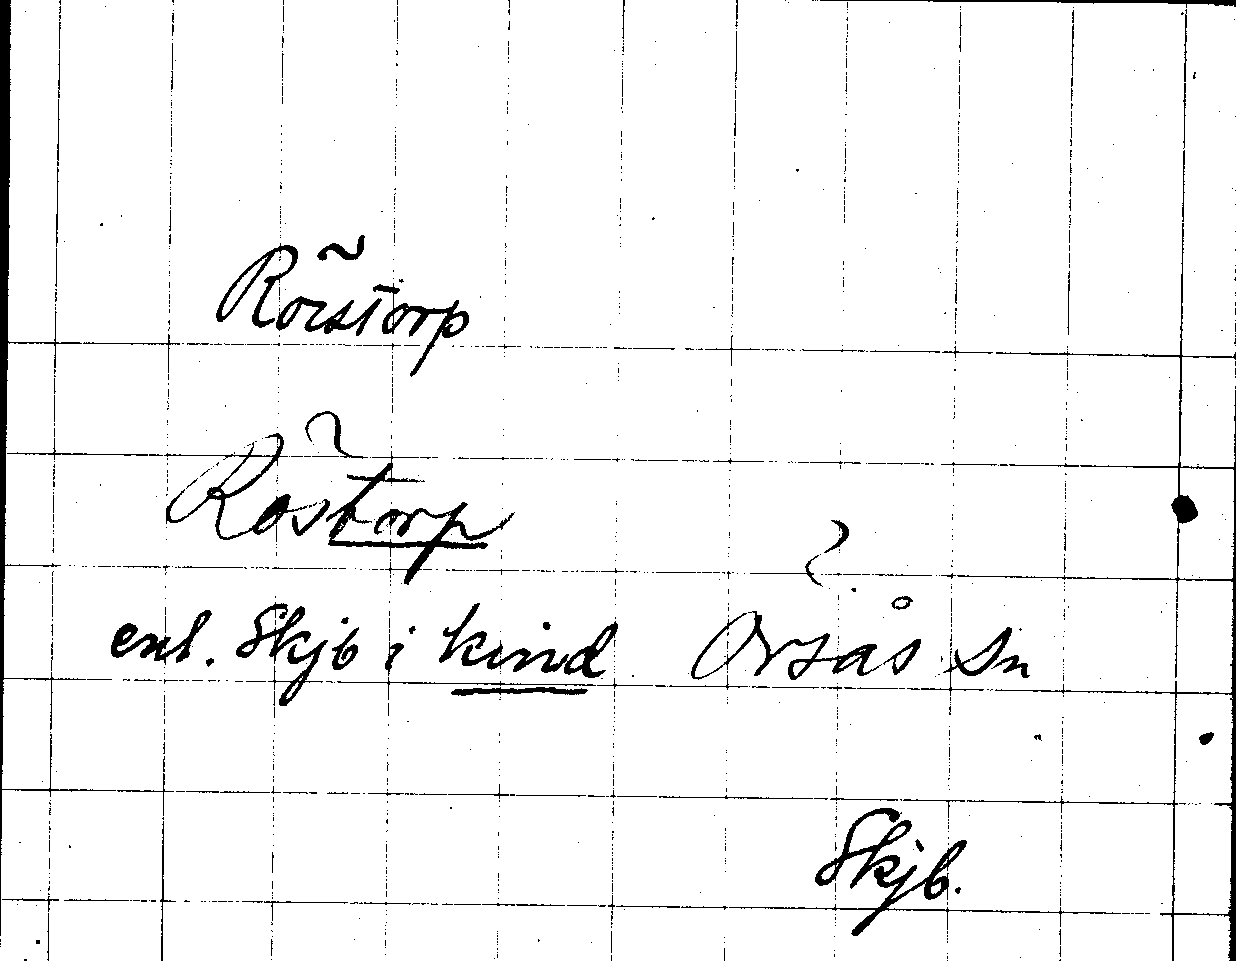 Rörstorp
Röstorp
?
enl. Skjb i kind Örsås sn
Skjb.